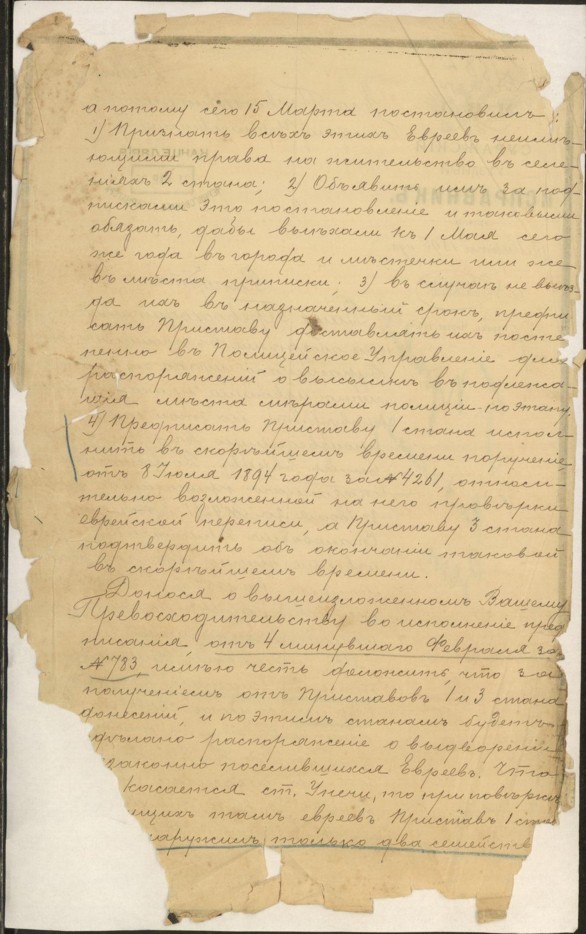 а потому сего 15 Марта постановилъ:
1) Признать всѣхъ этихъ Евреевъ неимѣ-
ющими права на жительство въ селе-
ніяхъ 2 стана; 2) Объявить имъ за под-
писками это постановленіе и таковыми
обязать, дабы выѣхали къ 1 Мая сего
же года въ города и мѣстечки или же
въ мѣста приписки; 3) въ случаѣ не выѣз-
да ихъ въ назначенный срокъ, предпи
сать Приставу доставлять ихъ посте-
пенно въ Полицейское Управленіе для
распоряженій о высылкѣ въ подлежа-
щія мѣста мѣрами полиціи-поэтапу
4) Предписать Приставу 1 стана испол-
нить въ скорѣйшемъ времени порученіе
отъ 8 Іюля 1894 года за № 4261, относи-
тельно возложенной на него провѣрки
еврейской переписи, а Приставу 3 стана
подтвердить объ окончаніи таковой
въ скорѣйшемъ времени.
Донося о вышеизложенномъ Вашему
Превосходительству во исполненіе пред
писанія, отъ 4 минувшаго Февраля за
№ 783, имѣю честь доложить, что за
полученіемъ отъ Приставовъ 1 и 3 стана
донесеній, и по этимъ станамъ будетъ
дѣлано распоряженіе о выдвореніи
законно поселившихся Евреевъ. Что
касается ст. Унечи, то при повѣркѣ
щихъ тамъ евреевъ Приставъ 1 ста
аружилъ только два семейств